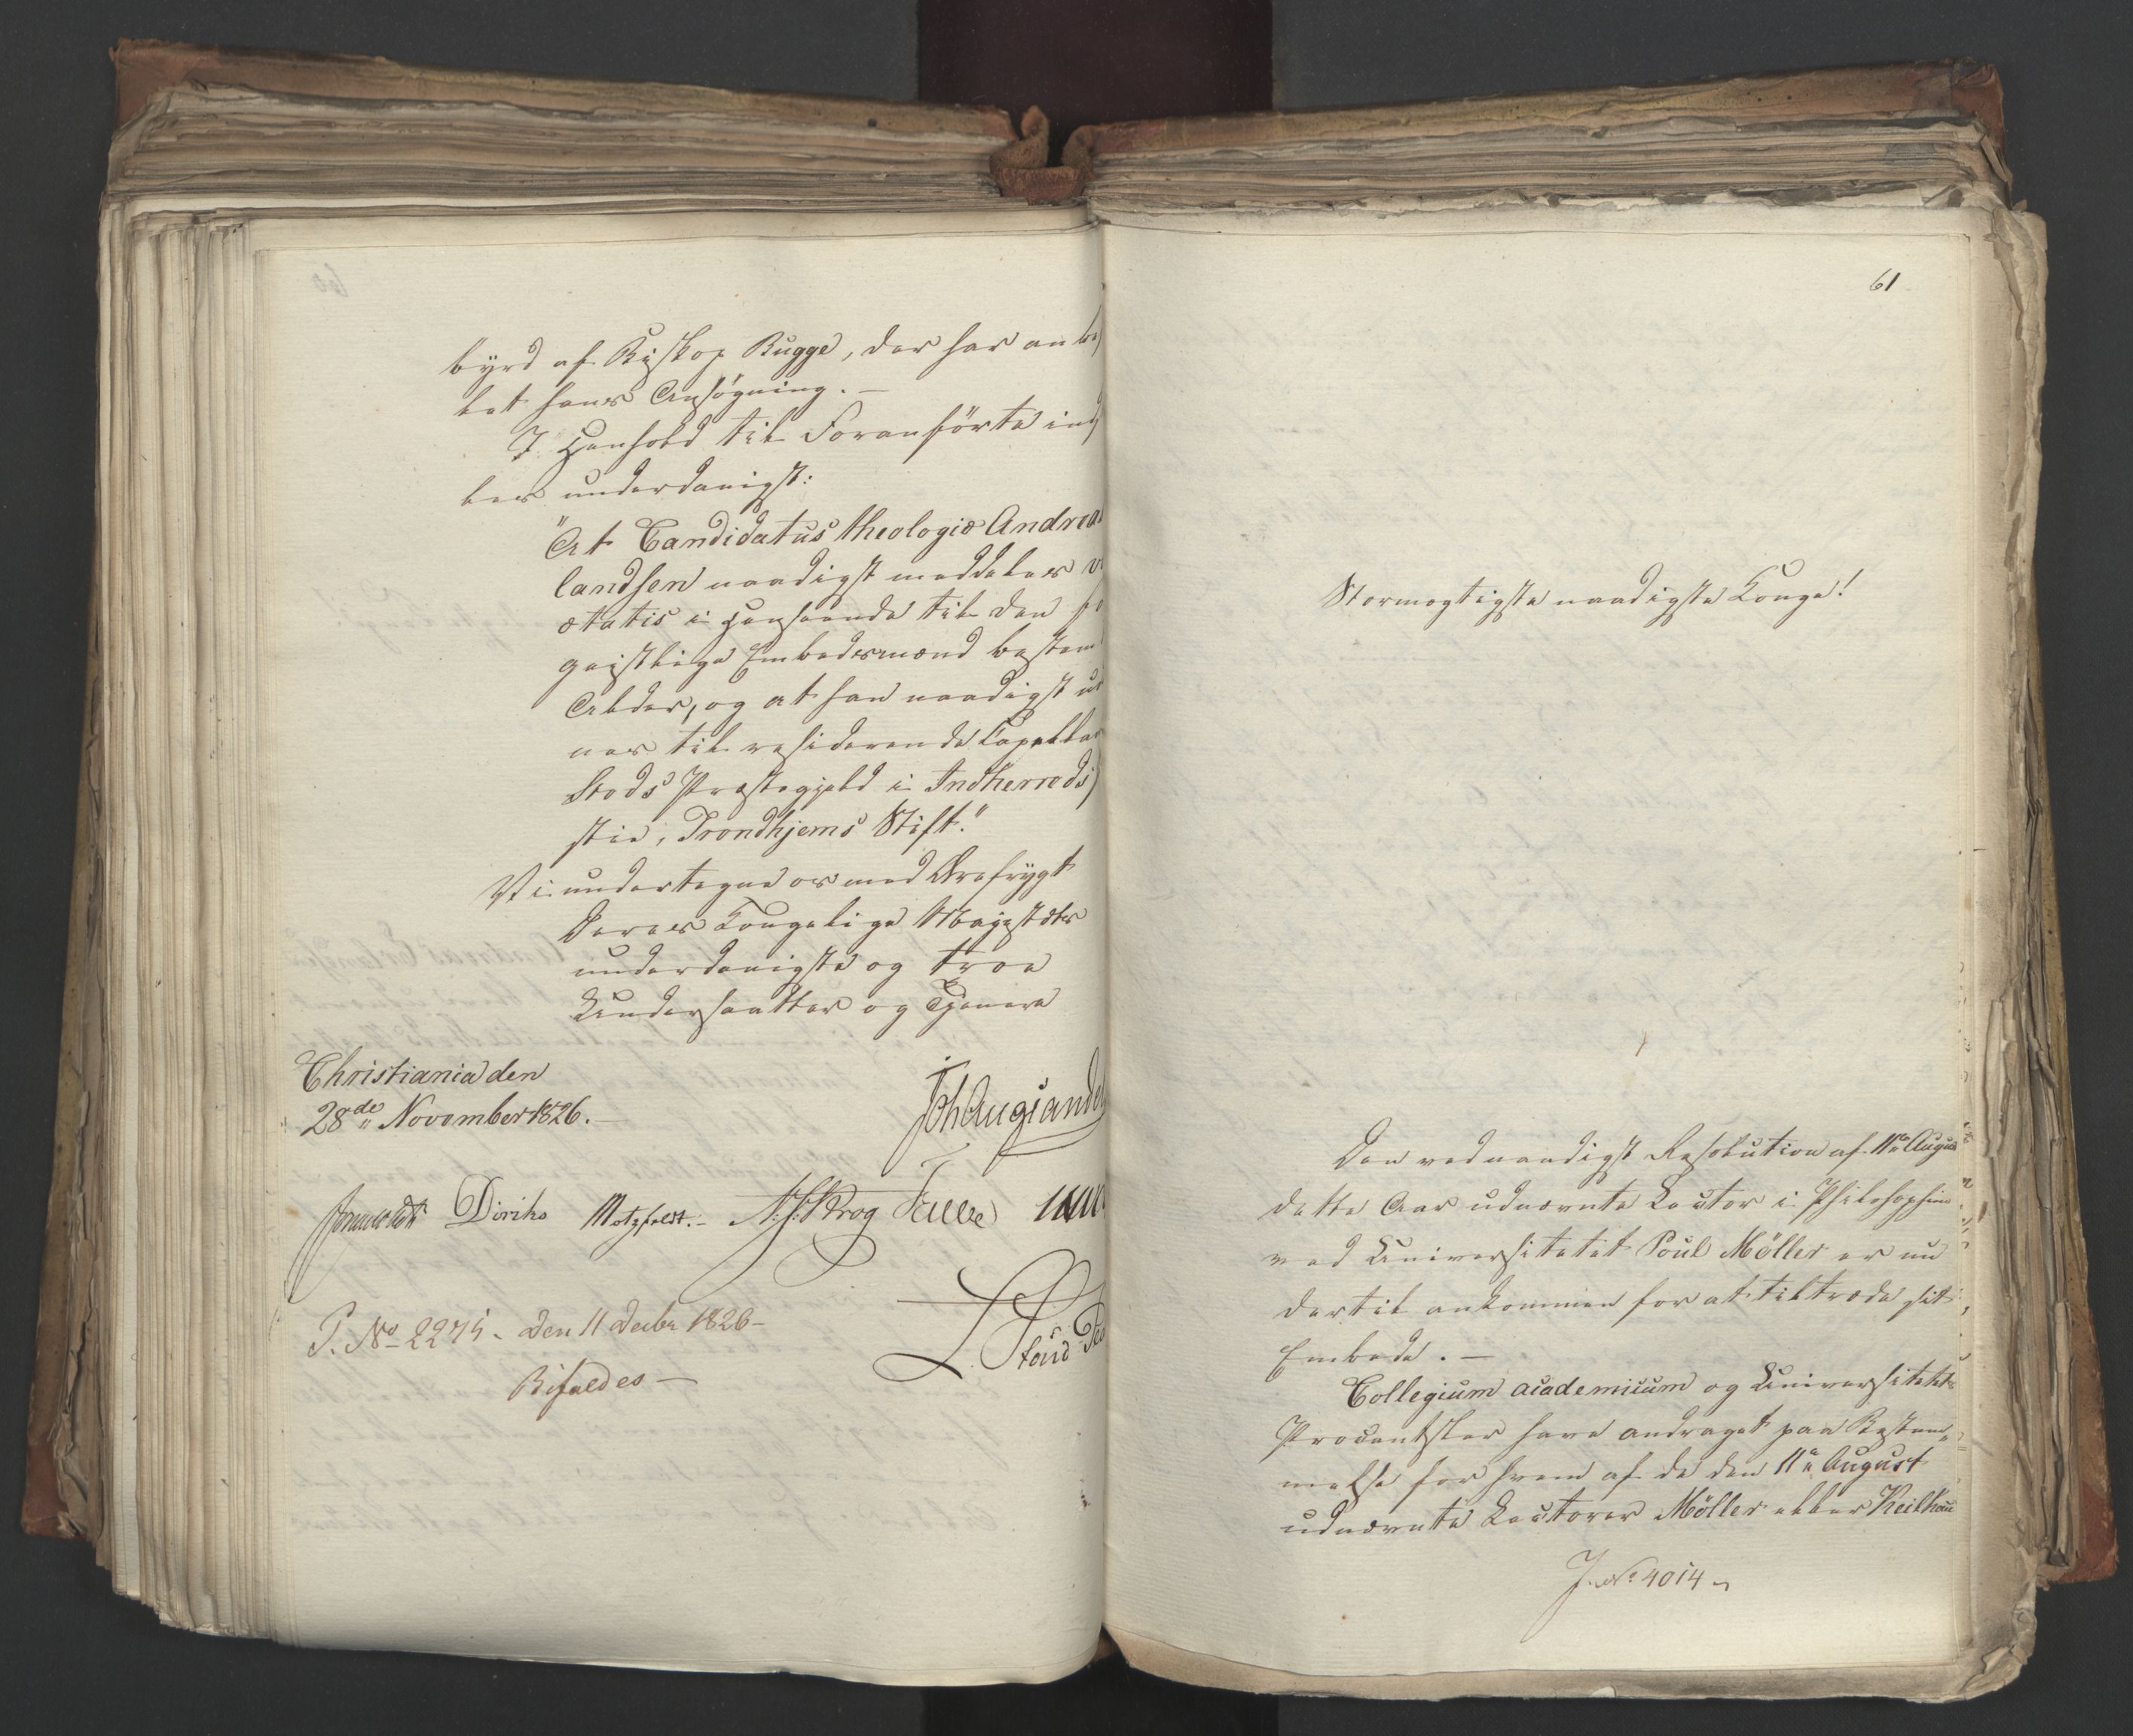 byrd af Biskop Bugge, der har anbe
let hans Ansøgning. —
I Henhold til Foranførte ind
les underdanigst:
"At Candidatus theologiæ Andrea
landsen naadigst meddeles v
ætatis i Henseende til den fo
geistlige Embedsmænd bestem
Alder, og at han naadigst ud
nes til residerende Capellan
Stods Præstegjeld i Indherreds
stie, Trondhjems Stift."
Vi undertegne os med Ærefrygt
Deres Kongelige Majestæts
underdanigste og troe
Undersaatter og Tjenere
Christiania den
28de November 1826. —
Joh Aug Sande
Diriks Motzfeldt. - N. J. Krog
P. No 2275. den 11 Decbr 1826 -
Bifaldes —
61
Stormægtigste naadigste Konge!
Den ved naadigst Resolution af 11te Augus
dette Aar udnævnte Lector i Philosophien
ved Universitetet Poul Möller er nu
dertil ankommen for at tiltræde sit
Embede. —
Collegium academicum og Universitetets
Procantsler have andraget paa Bestem-
melse for hvem af de den 11te August
udnævnte Lectorer Möller eller Keilhau
J. No 4014